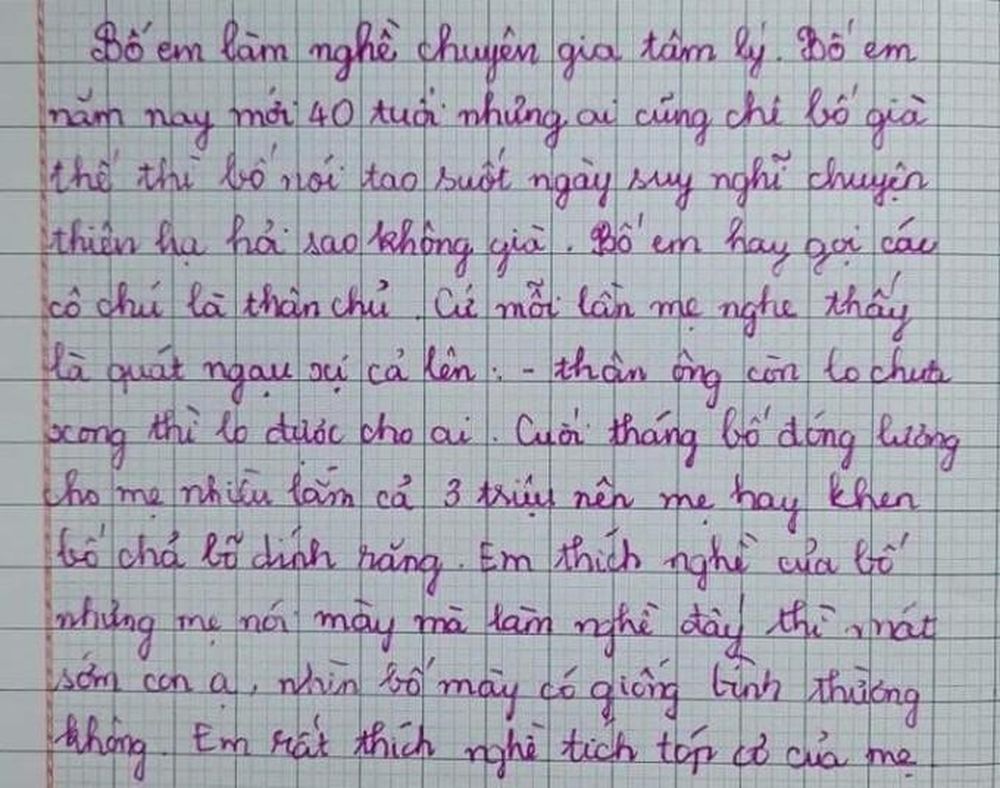 Bố em làm nghề chuyên gia tâm lý. Bố em
năm nay mới 40 tuổi nhưng ai cũng chê bố già
thế thì bố nói tao suốt ngày suy nghĩ chuyện
thiên hạ hỏi sao không già. Bố em hay gọi các
cô chú là thân chủ. Cứ mỗi lần mẹ nghe thấy
là quát ngạu xị cả lên: - thân ông còn lo chưa
xong thì lo được cho ai. Cuối tháng bố đóng lương
cho mẹ nhiều lắm cả 3 triệu nên mẹ hay khen
bố chả bõ dính răng. Em thích nghề của bố
nhưng mẹ nói mày mà làm nghề đấy thì mát
sớm con ạ, nhìn bố mày có giống bình thường
không. Em rất thích nghề tích tóp cơ của mẹ